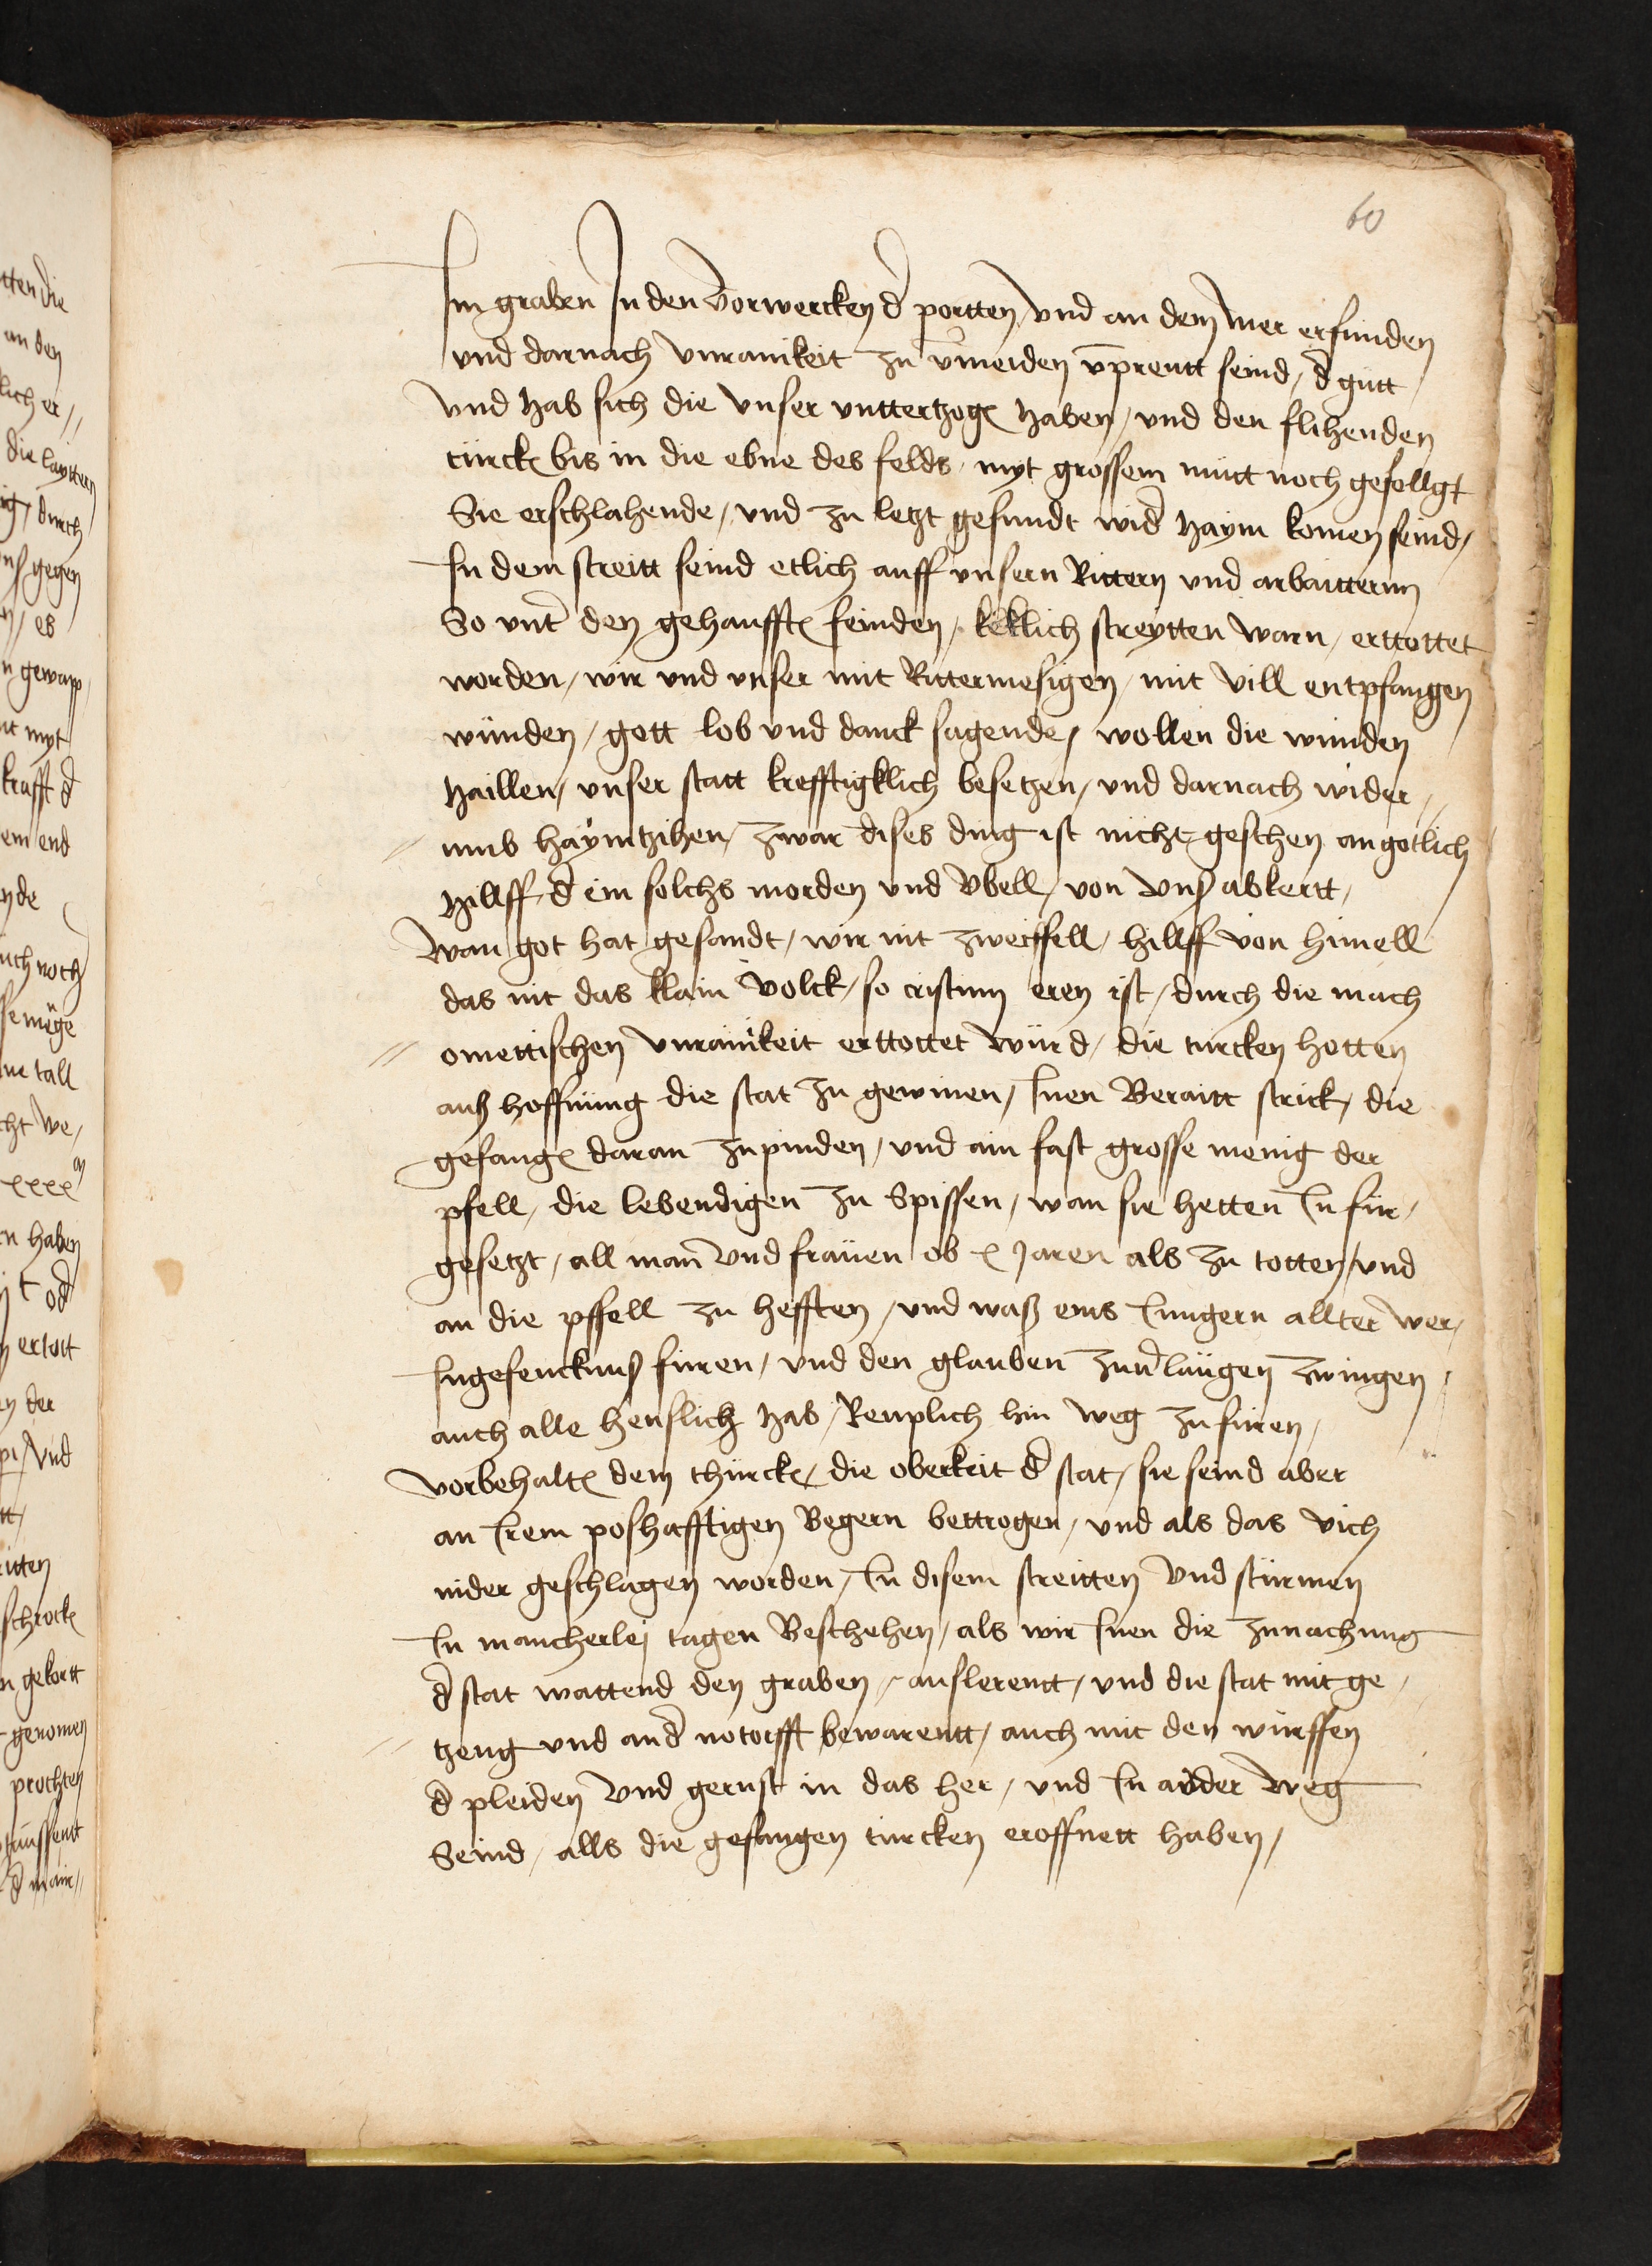 60
Im graben In den Vorwercken d portten, vnd an dem mer erfunden
vnd darnach vnrainikeit zu vmeiden vprentt seind, d gutt
vnd hab sich die vnser vntterzogn haben, vnd den flihenden
türckn bis in die ebne des felds, myt grossem mutt noch gefollgt
Sie erschlahende, vnd zu letzt gesundt wid haym komen seind,
In dem streitt seind etlich auff vnsern Rittern vnd arbaitternn
So vnt den gehaufftn feinden, keklich streytten warn, erttottet
worden, wir vnd vnser mit Rittermesigen, mit vill entpfangen
wunden, gott lob vnd danck sagende, wollen die wunden
haillen, vnser statt krefftigklich besetzen, vnd darnach wider
umb haymtzihen, zwar dises ding ist nicht geschen an gotlich
hillff d ein solchs morden vnd vbell, von vns abkertt,
wan got hat gesandt, wir nit zweiffell, hillff von himell
das nit das klain volck, so cristum eren ist, durch die mach
omettischen vnrainikeit erttottet würd, die turcken hetten
auß hoffnung die stat zu gewinen, Inen Beraitt strick, die
gefangn daran zu pinden, vnd ain fast grosse menig der
pfell, die lebendigen zu Spissen, wan sie hetten In für,
gesetzt, all man vnd frauen ob x Jaren als zu totten, vnd
an die pffell zu hefften, vnd waß eins Jungern allter wer,
In gefencknuß furen, vnd den glauben zuvlaugen zwingen,
auch alle heuslich hab, Reuplich hin weg zu furen,
vorbehaltn dem thürckn, die oberkeit d stat, sie seind aber
an Irem poshafftigen Begern bettrogen, vnd als das vich
nider geschlagen worden, In disem streitten vnd stürmen
In mancherley tagen Beschehen, als wir Inen die zunachung
d stat wattend den graben, auslerentt, vnd die stat mit ge,
tzeug vnd and notorfft bewarentt, auch mit den würffen
d pleiden vnd gerust in das her, vnd In ander weg
Seind, alls die gefangen turcken eroffnett haben,